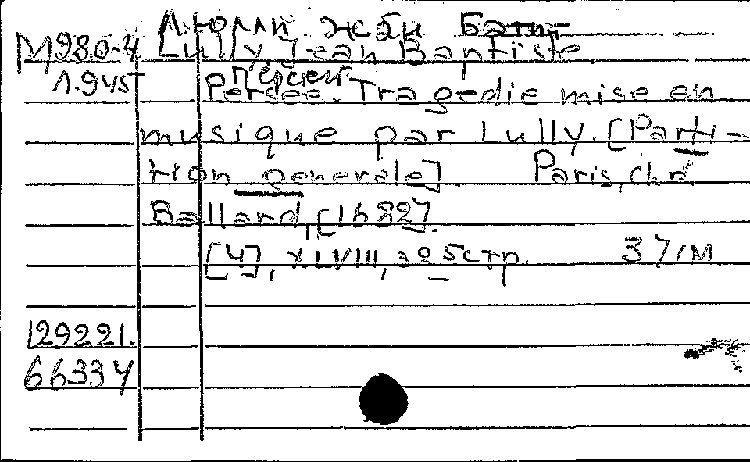 Люлли, Жан Батист
M980-4 Lully Jean Baptiste
1.945 Персей
Persee. Tragedie mise en
musique par Lully. [Parti-
tion generale] Paris, chr.
Ballard, [1682].
[4], XLVIII, 325 стр. 37/м
129221.
66334